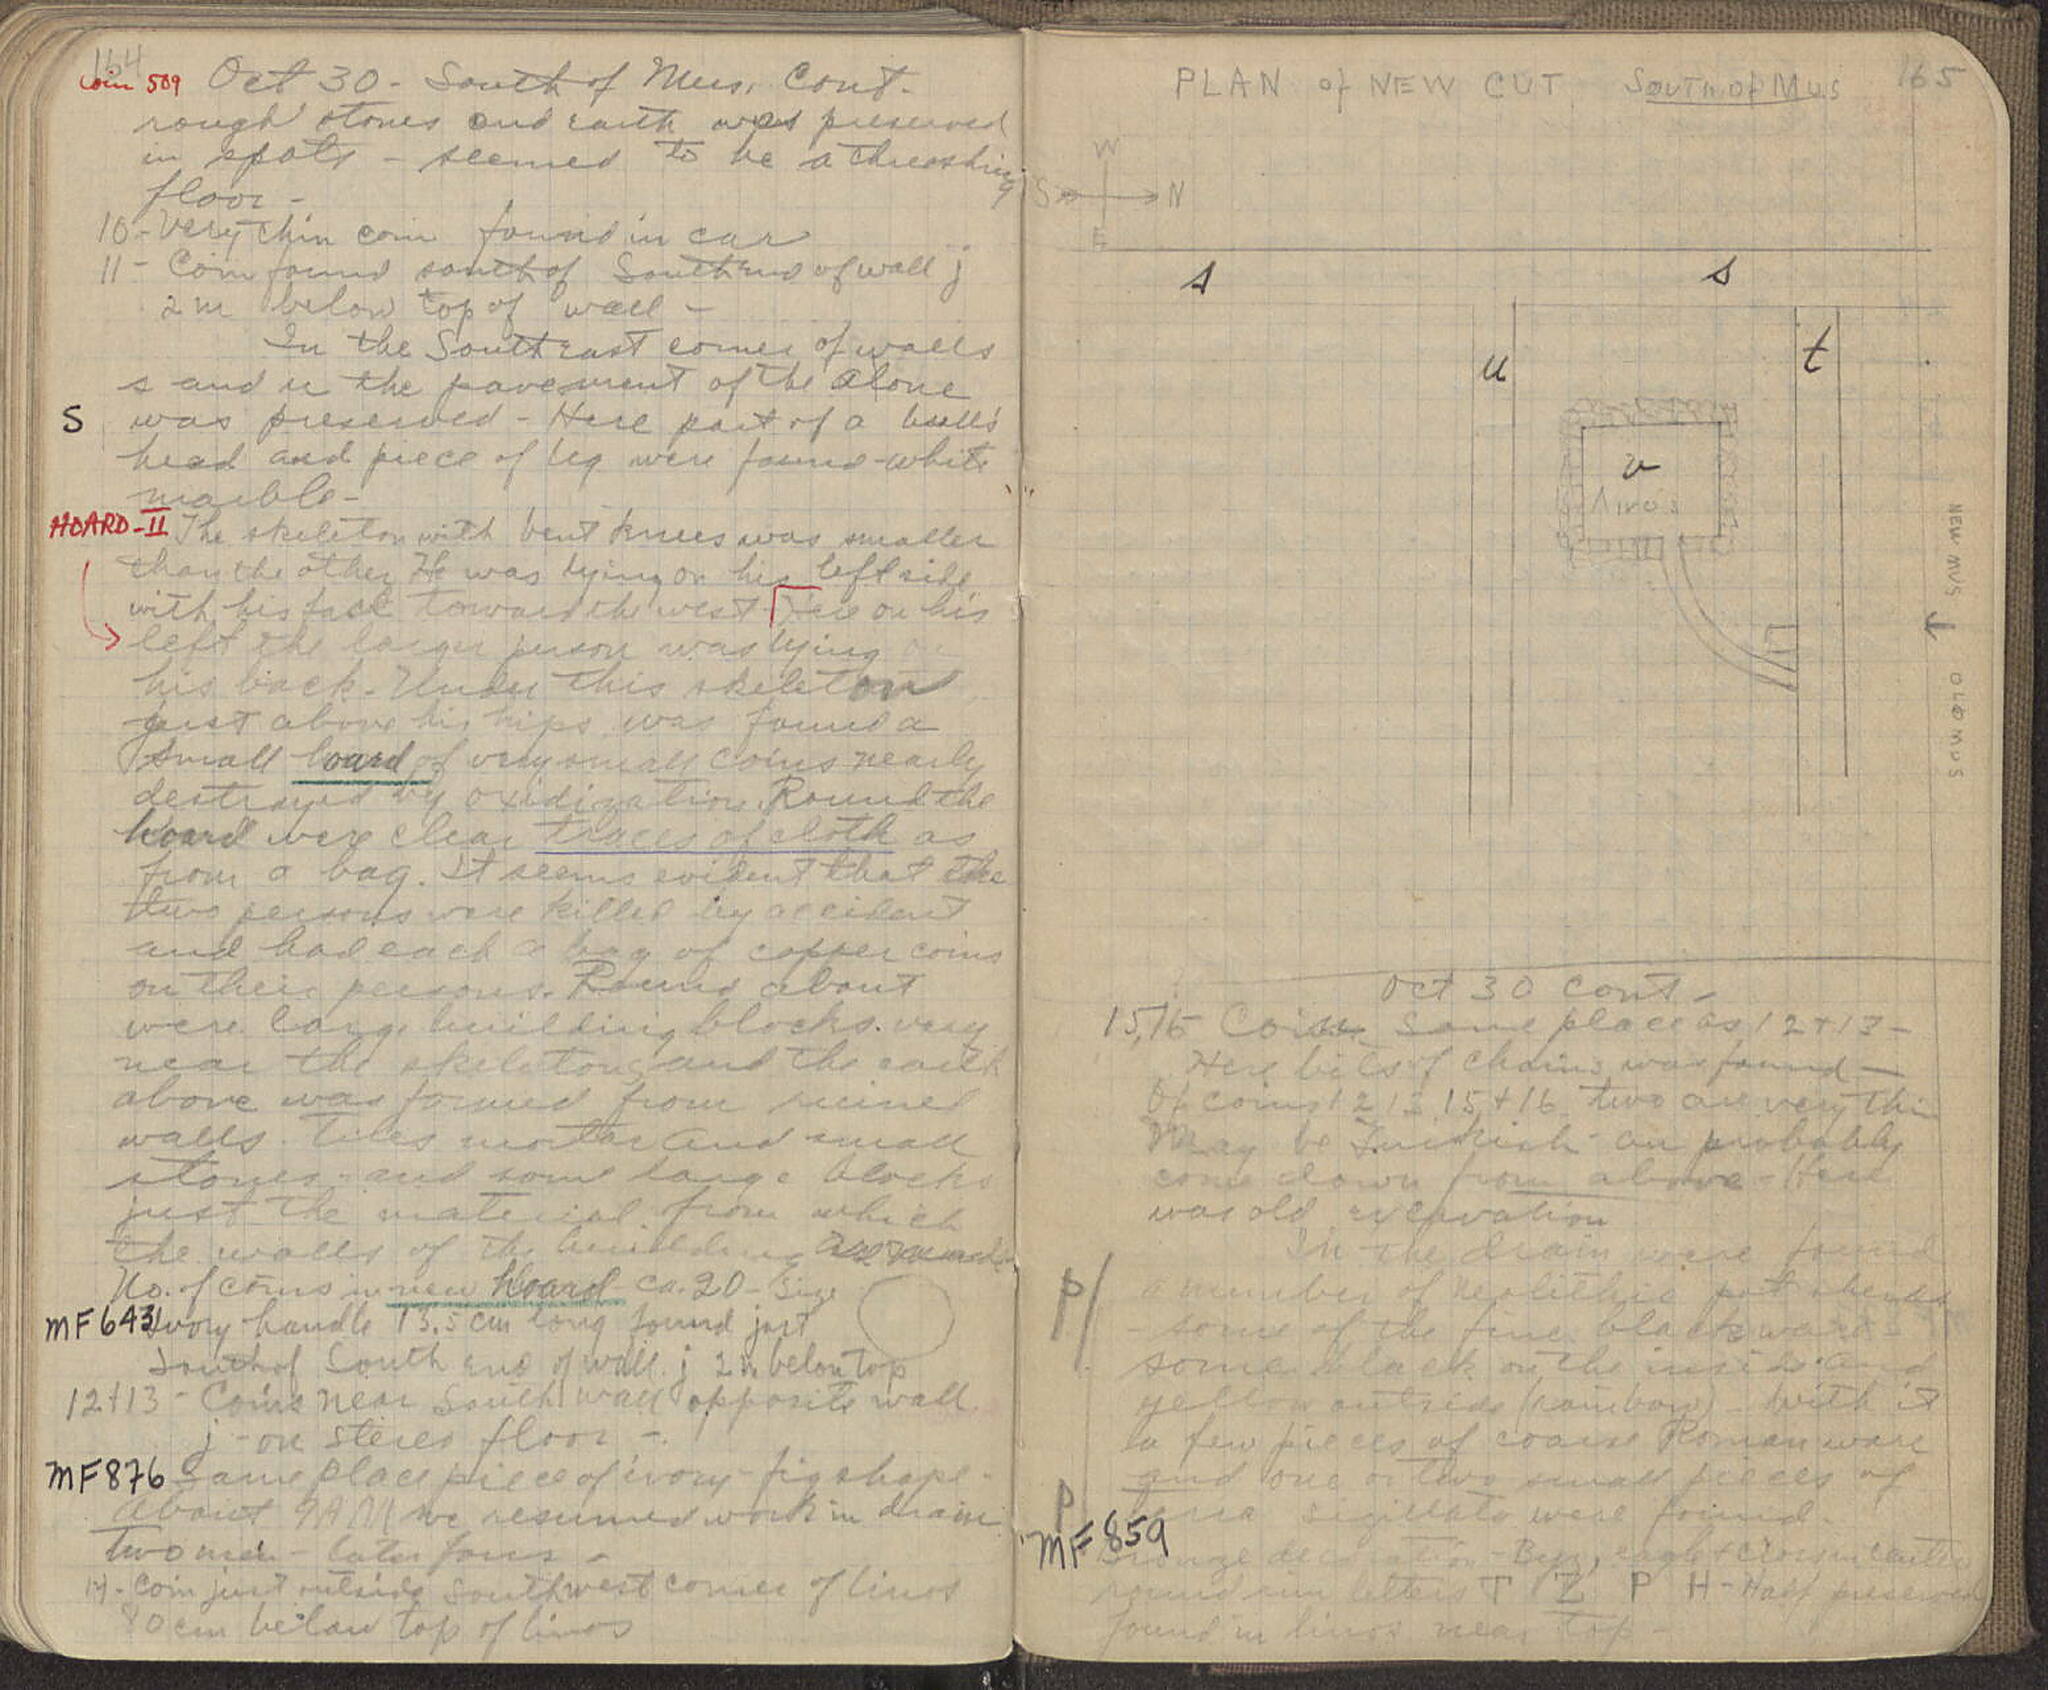 164
Coin 509
Oct 30 - South of Mus. Cont.
rough stones and earth was preserved
in spots - seemed to be a threashing
floor -
10 - Very thin coin found in car
11 - Coin found south of South end of wall j
2 m below top of wall -
In the Southeast corner of walls
s and u the pavement of the alone
S
was preserved - Here part of a bull's
head and piece of leg were found - white
marble -
HOARD - II
The skeleton with bent knees was smaller
than the other. He was lying on his left side
with his face toward the west. Here on his
left the larger person was lying on
his back. Under this skeleton
just above his hips was found a
small hoard of very small coins nearly
destroyed by oxidization. Round the
hoard were clear traces of cloth as
from a bag. It seems evident that the
two persons were killed by accident
and had each a bag of copper coins
on their persons. Round about
were large building blocks very
near the skeletons and the earth
above was formed from ruined
walls. Tiles mortar and small
stones - and some large blocks
just the material from which
the walls of the building
No. of coins in new hoard ca. 20 - size
MF 643
Ivory handle 13.5 cm long found just
South of South end of wall j 2 m below top
12+13 - Coins near South wall opposite wall
j - on stereo floor -
MF 876
Same place piece of ivory - fig shape -
About 9 AM we resumed work in drain
two men - later four -
14 - Coin just outside Southwest corner of linos
80 cm below top of linos
165
PLAN of NEW CUT SOUTH of MUS
W
S N
E
s s
u
t
v
Λινός
NEW MUS
OLD MUS
Oct 30 Cont -
15,16 Coins same place as 12+13 -
Here bits of chains was found -
Of coins 12 13 15+16 two are very thin
May be Turkish - an probably
come down from above - Here
was old excavation
In the drain were found
P/
a number of Neolithic pot sherds
- some of the fine black ware -
some black on the inside and
yellow outside (rainbow) - With it
a few pieces of coarse Roman ware
and one or two small pieces of
P/
terra sigillata were found.
MF 859
Bronze decoration - Byz, eagle + cross in center
round rim letters T Z P H - Half preserved
found in linos near top -